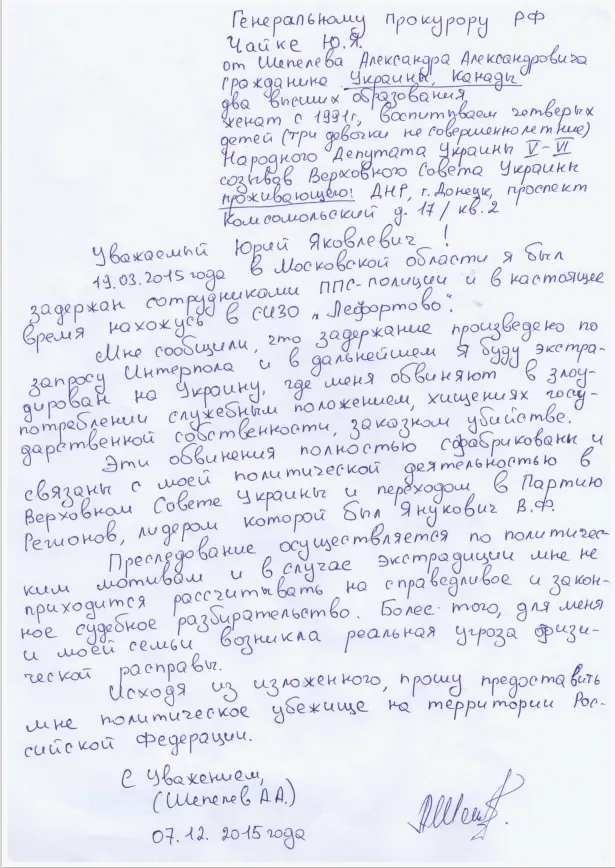 Генеральному прокурору РФ
Чайке Ю.Я.
от Шепелева Александра Александровича
гражданина Украины, Канады
два высших образования
женат с 1991г, воспитываем четверых
детей (три девочки не совершеннолетние)
Народного Депутата Украины V-VI
созывав Верховного Совета Украины
проживающего! ДНР, г. Донецк, проспект
Комсомольский д. 17/ кв. 2
Уважаемый Юрий Яковлевич !
19.03.2015 года в Московской области я был
задержан сотрудниками ППС-полиции и в настоящее
время нахожусь в СИЗО „Лефортово".
Мне сообщили, что задержание произведено по
запросу Интерпола и в дальнейшем я буду экстра-
дирован на Украину, где меня обвиняют в злоу-
потреблении служебным положением, хищениях госу-
дарственной собственности, заказном убийстве.
Эти обвинения полностью сфабрикованы и
связаны с моей политической деятельностью в
Верховном Совете Украины и переходом в Партию
Регионов, лидером которой был Янукович В.Ф.
Преследование осуществляется по политичес-
ким мотивам и в случае экстрадиции мне не
приходится рассчитывать на справедливое и закон-
ное судебное разбирательство. Более того, для меня
и моей семьи возникла реальная угроза физи-
ческой расправы.
Исходя из изложенного, прошу предоставить
мне политическое убежище на территории Рос-
сийской Федерации.
С Уважением,
(Шепелев А.А.)
07.12. 2015 года